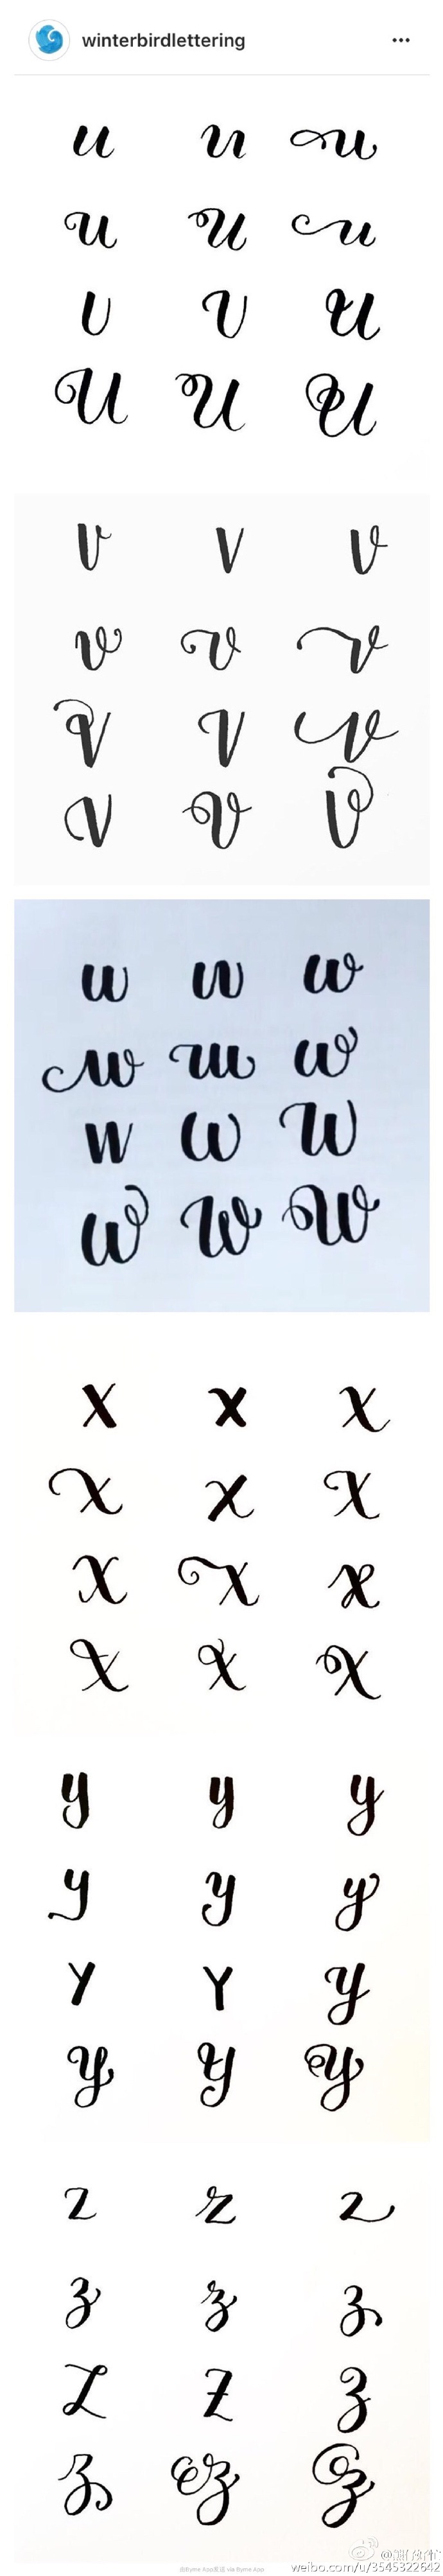 winterbirdlettering
u u u
u u u
u u u
u u u
v v v
v v v
v v v
v v v
w w w
w w w
w w w
w w w
x x x
x x x
x x x
x x x
y y y
y y y
Y Y y
y y y
z z z
z z z
z z z
z z z
weibo.com/u/3545322642